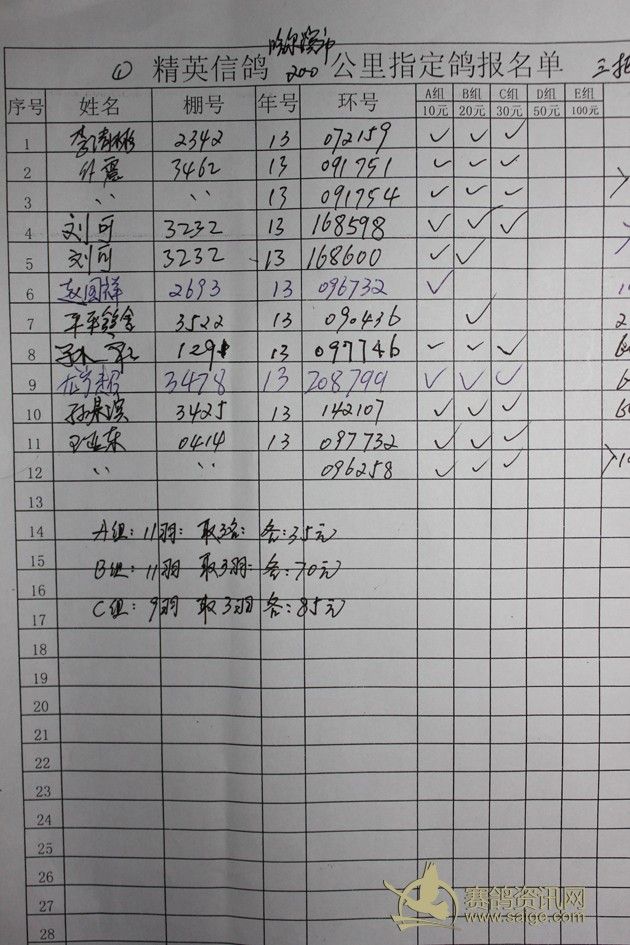 哈尔滨市
① 精英信鸽 200 公里指定鸽报名单 三
序号 姓名 棚号 年号 环号 A组 10元 B组 20元 C组 30元 D组 50元 E组 100元
1 2342 13 072159 ✓ ✓ ✓
2 3462 13 091751 ✓ ✓ ✓
3 〃 〃 13 091754 ✓ ✓ ✓
4 刘可 3232 13 168598 ✓ ✓ ✓
5 刘可 3232 13 168600 ✓ ✓
6 赵国祥 2693 13 096732 ✓
7 3522 13 090436 ✓
8 129 13 097746 ✓ ✓ ✓
9 3478 13 208799 ✓ ✓ ✓
10 3425 13 142107 ✓ ✓ ✓
11 王亚东 0414 13 097732 ✓ ✓ ✓
12 〃 〃 096258 ✓ ✓ ✓
13
14 A组: 11羽: 取3名: 各:35元
15 B组: 11羽 取3羽: 各:70元
16
17 C组: 9羽 取3羽 各:85元
18
19
20
21
22
23
24
25
26
27
28
赛鸽资讯网
www.saige.com